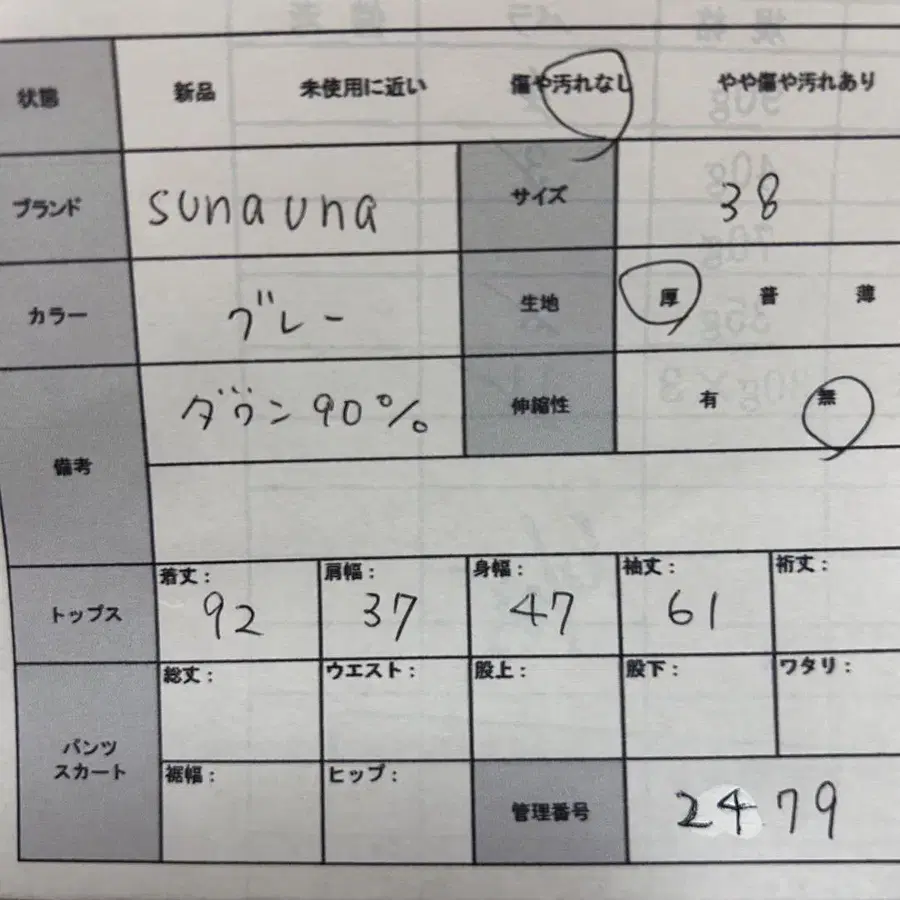 状態 新品 未使用に近い 傷や汚れなし やや傷や汚れあり
ブランド sunauna サイズ 38
カラー グレー 生地 厚 普 薄
備考 ダウン 90% 伸縮性 有 無
トップス 着丈: 92 肩幅: 37 身幅: 47 袖丈: 61 裄丈:
パンツ スカート 総丈: ウエスト: 股上: 股下: ワタリ:
裾幅: ヒップ: 管理番号 2479